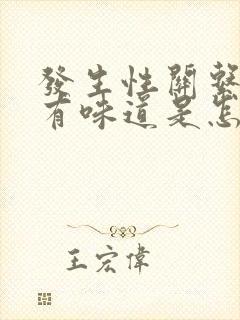 發生性關繫
有味道是怎
王宏偉